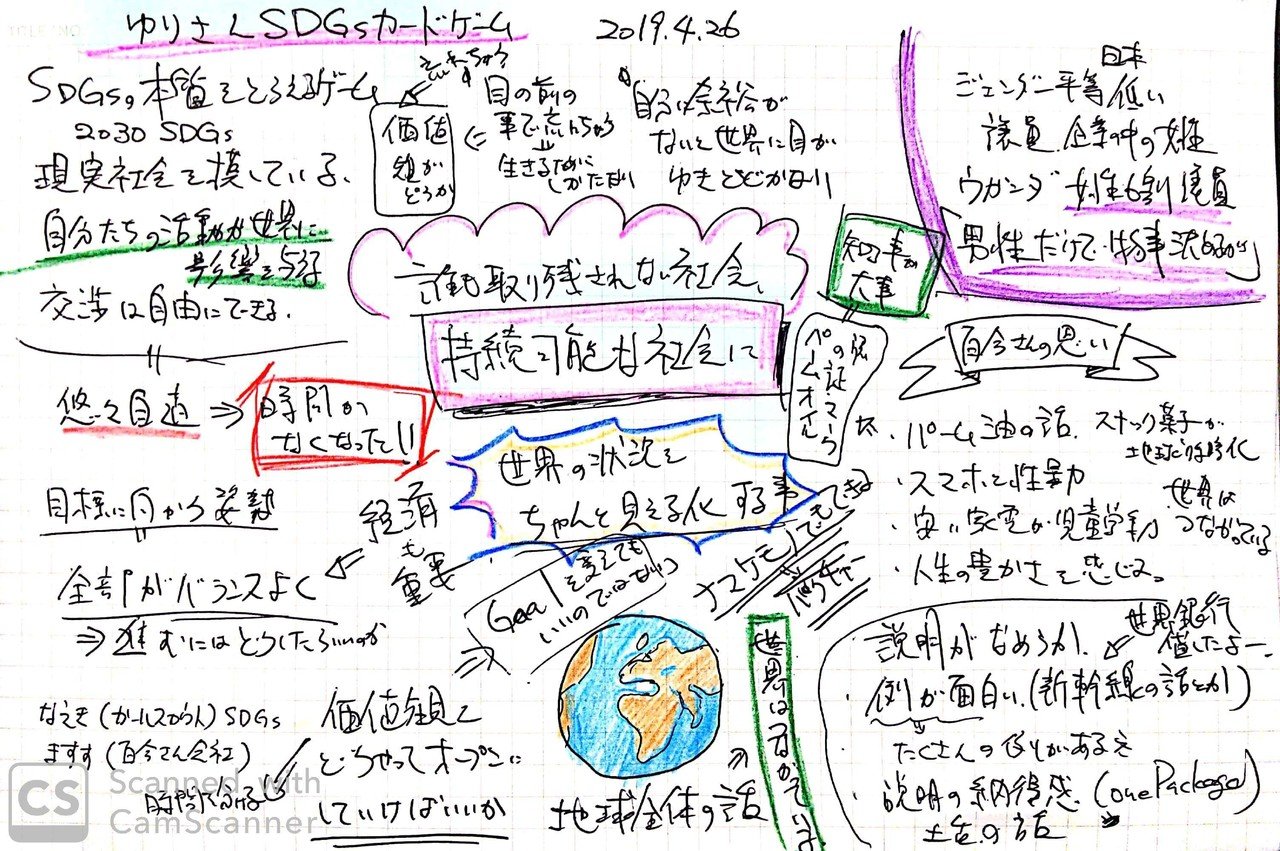 ゆりさんSDGsカードゲーム
2019.4.26
SDGsの本質をとらえるゲーム
2030 SDGs
現実社会を模している。
自分たちの活動が世界に
影響を与える
交渉は自由にできる。
悠々自適 ⇒
時間が
なくなった!!
目標に向かう姿勢
全部がバランスよく
⇒ 進むにはどうしたらいいのか
経済
も
重要
価値
観が
どうか
目の前の
生きるために
しかたない
自分に余裕が
ないと世界に目が
ゆきとどかない
誰も取り残されない社会、
持続可能な社会に
世界の状況を
ちゃんと見える化する事
Goalを変えても
いいのではないか
価値観を
どうやってオープンに
していけばいいか
地球全体の話
世界はつながっている
知る事が
大事
パームオイル
日本
ジェンダー平等 低い
議員、企業の中の女性
ウガンダ 女性6割議員
「男性だけで物事決めるな」
百合さんの思い
・パーム油の話、スナック菓子が
地球温暖化
・スマホと性暴力
・安い家電が児童労働
世界は
つながっている
・人生の豊かさを感じる。
・説明がなめらか、
世界銀行
・例が面白い(新幹線の話とか)
たくさんの例がある
・説明の納得感 (one Package)
土台の話
SDGs
ますす (百合さん会社)
CS Scanned with
CamScanner